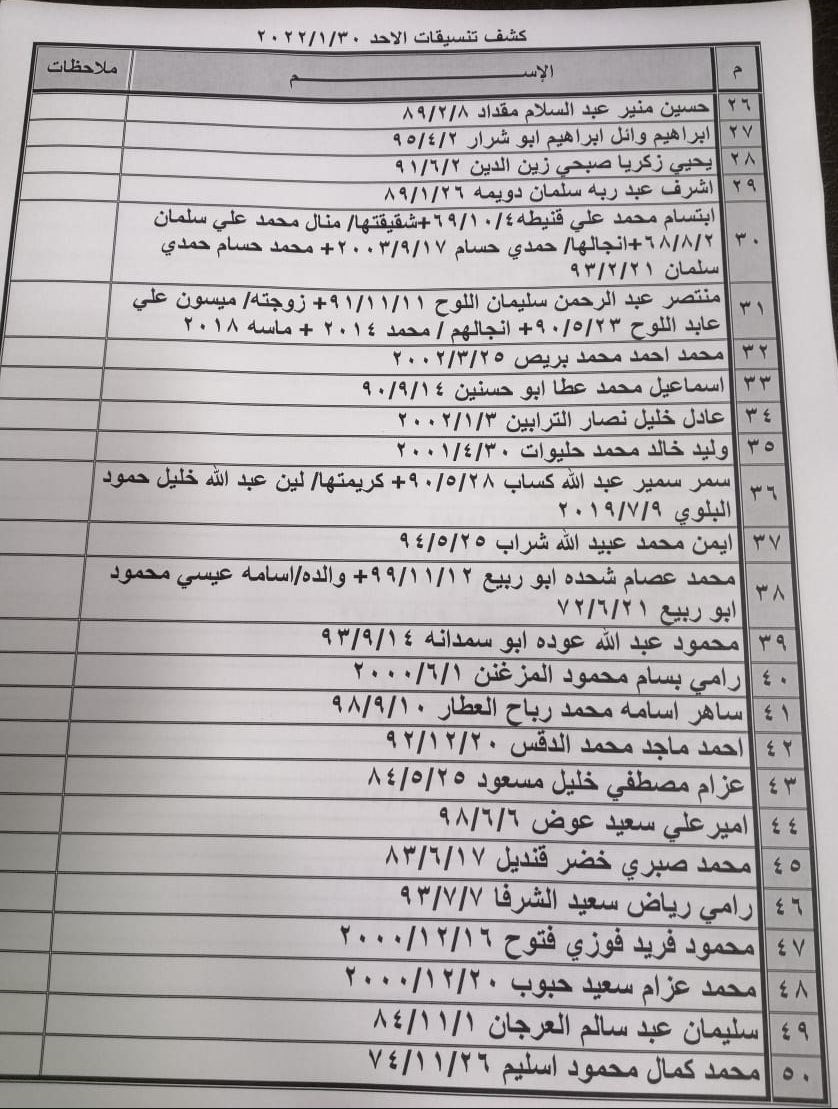 كشف تنسيقات الاحد ٢٠٢٢/١/٣٠
م الإســـــــم ملاحظات
٢٦ حسين منير عبد السلام مقداد ٨٩/٢/٨
٢٧ ابراهيم وائل ابراهيم ابو شرار ٩٥/٤/٢
٢٨ يحيي زكريا صبحي زين الدين ٩١/٦/٢
٢٩ اشرف عبد ربه سلمان دويمه ٨٩/١/٢٦
٣٠ ابتسام محمد علي قنيطه ٦٩/١٠/٤+شقيقتها/ منال محمد علي سلمان
٦٨/٨/٢+انجالها/ حمدي حسام ٢٠٠٣/٩/١٧+ محمد حسام حمدي
سلمان ٩٣/٢/٢١
٣١ منتصر عبد الرحمن سليمان اللوح ٩١/١١/١١+ زوجته/ ميسون علي
عابد اللوح ٩٠/٥/٢٣+ انجالهم / محمد ٢٠١٤ + ماسه ٢٠١٨
٣٢ محمد احمد محمد بريص ٢٠٠٢/٣/٢٥
٣٣ اسماعيل محمد عطا ابو حسنين ٩٠/٩/١٤
٣٤ عادل خليل نصار الترابين ٢٠٠٢/١/٣
٣٥ وليد خالد محمد حليوات ٢٠٠١/٤/٣٠
٣٦ سمر سمير عبد الله كساب ٩٠/٥/٢٨+ كريمتها/ لين عبد الله خليل حمود
البلوي ٢٠١٩/٧/٩
٣٧ ايمن محمد عبيد الله شراب ٩٤/٥/٢٥
٣٨ محمد عصام شحده ابو ربيع ٩٩/١١/١٢+ والده/اسامه عيسي محمود
ابو ربيع ٧٢/٦/٢١
٣٩ محمود عبد الله عوده ابو سمدانه ٩٣/٩/١٤
٤٠ رامي بسام محمود المزغنن ٢٠٠٠/٦/١
٤١ ساهر اسامه محمد رباح العطار ٩٨/٩/١٠
٤٢ احمد ماجد محمد الدقس ٩٢/١٢/٢٠
٤٣ عزام مصطفي خليل مسعود ٨٤/٥/٢٥
٤٤ امير علي سعيد عوض ٩٨/٦/٦
٤٥ محمد صبري خضر قنديل ٨٣/٦/١٧
٤٦ رامي رياض سعيد الشرفا ٩٣/٧/٧
٤٧ محمود فريد فوزي فتوح ٢٠٠٠/١٢/١٦
٤٨ محمد عزام سعيد حبوب ٢٠٠٠/١٢/٢٠
٤٩ سليمان عبد سالم العرجان ٨٤/١١/١
٥٠ محمد كمال محمود اسليم ٧٤/١١/٢٦